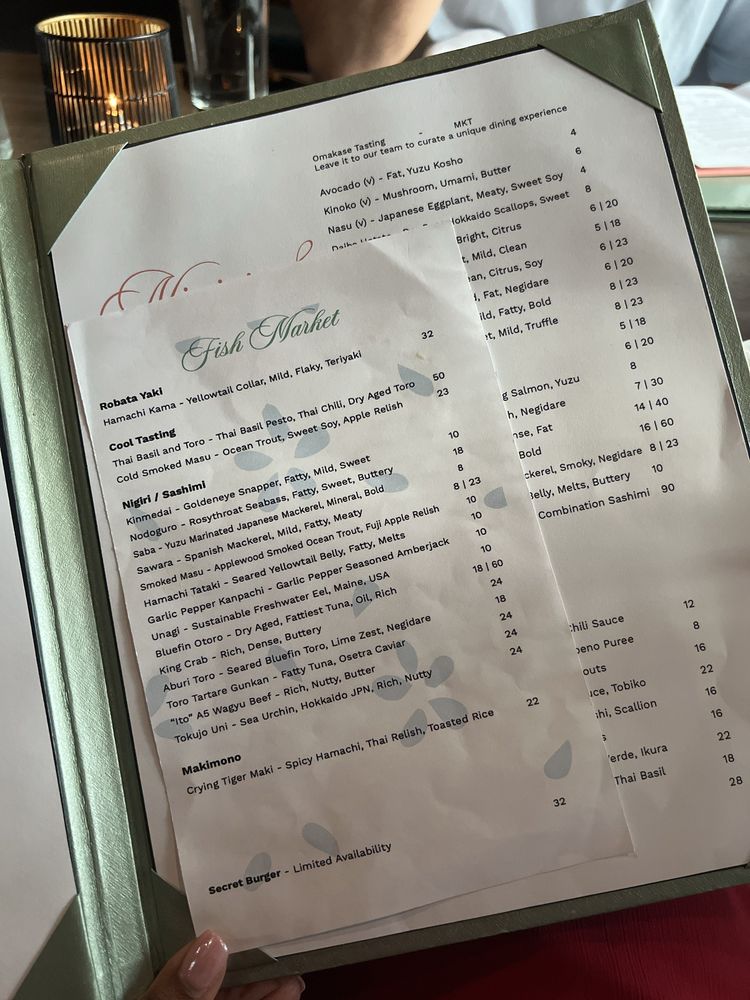 Omakase Tasting - MKT
Leave it to our team to curate a unique dining experience
Avocado (v) - Fat, Yuzu Kosho 4
Kinoko (v) - Mushroom, Umami, Butter 6
Nasu (v) - Japanese Eggplant, Meaty, Sweet Soy 4
Hokkaido Scallops, Sweet 8
Bright, Citrus 6 | 20
Mild, Clean 5 | 18
Citrus, Soy 6 | 23
Fat, Negidare 6 | 20
Fatty, Bold 8 | 23
Mild, Truffle 8 | 23
5 | 18
6 | 20
Salmon, Yuzu 8
Negidare 7 | 30
Fat 14 | 40
Bold 16 | 60
Smoky, Negidare 8 | 23
Belly, Melts, Buttery 10
Combination Sashimi 90
Chili Sauce 12
Puree 8
16
Tobiko 22
Scallion 16
16
Ikura 22
Thai Basil 18
28
Fish Market
Robata Yaki
Hamachi Kama - Yellowtail Collar, Mild, Flaky, Teriyaki 32
Cool Tasting
Thai Basil and Toro - Thai Basil Pesto, Thai Chili, Dry Aged Toro 50
Cold Smoked Masu - Ocean Trout, Sweet Soy, Apple Relish 23
Nigiri / Sashimi
Kinmedai - Goldeneye Snapper, Fatty, Mild, Sweet 10
Nodoguro - Rosythroat Seabass, Fatty, Sweet, Buttery 18
Saba - Yuzu Marinated Japanese Mackerel, Mineral, Bold 8
Sawara - Spanish Mackerel, Mild, Fatty, Meaty 8 | 23
Smoked Masu - Applewood Smoked Ocean Trout, Fuji Apple Relish 10
Hamachi Tataki - Seared Yellowtail Belly, Fatty, Melts 10
Garlic Pepper Kanpachi - Garlic Pepper Seasoned Amberjack 10
Unagi - Sustainable Freshwater Eel, Maine, USA 10
Bluefin Otoro - Dry Aged, Fattiest Tuna, Oil, Rich 18 | 60
King Crab - Rich, Dense, Buttery 24
Aburi Toro - Seared Bluefin Toro, Lime Zest, Negidare 18
Toro Tartare Gunkan - Fatty Tuna, Osetra Caviar 24
"Ito" A5 Wagyu Beef - Rich, Nutty, Butter 24
Tokujo Uni - Sea Urchin, Hokkaido JPN, Rich, Nutty 24
Makimono
Crying Tiger Maki - Spicy Hamachi, Thai Relish, Toasted Rice 22
Secret Burger - Limited Availability 32